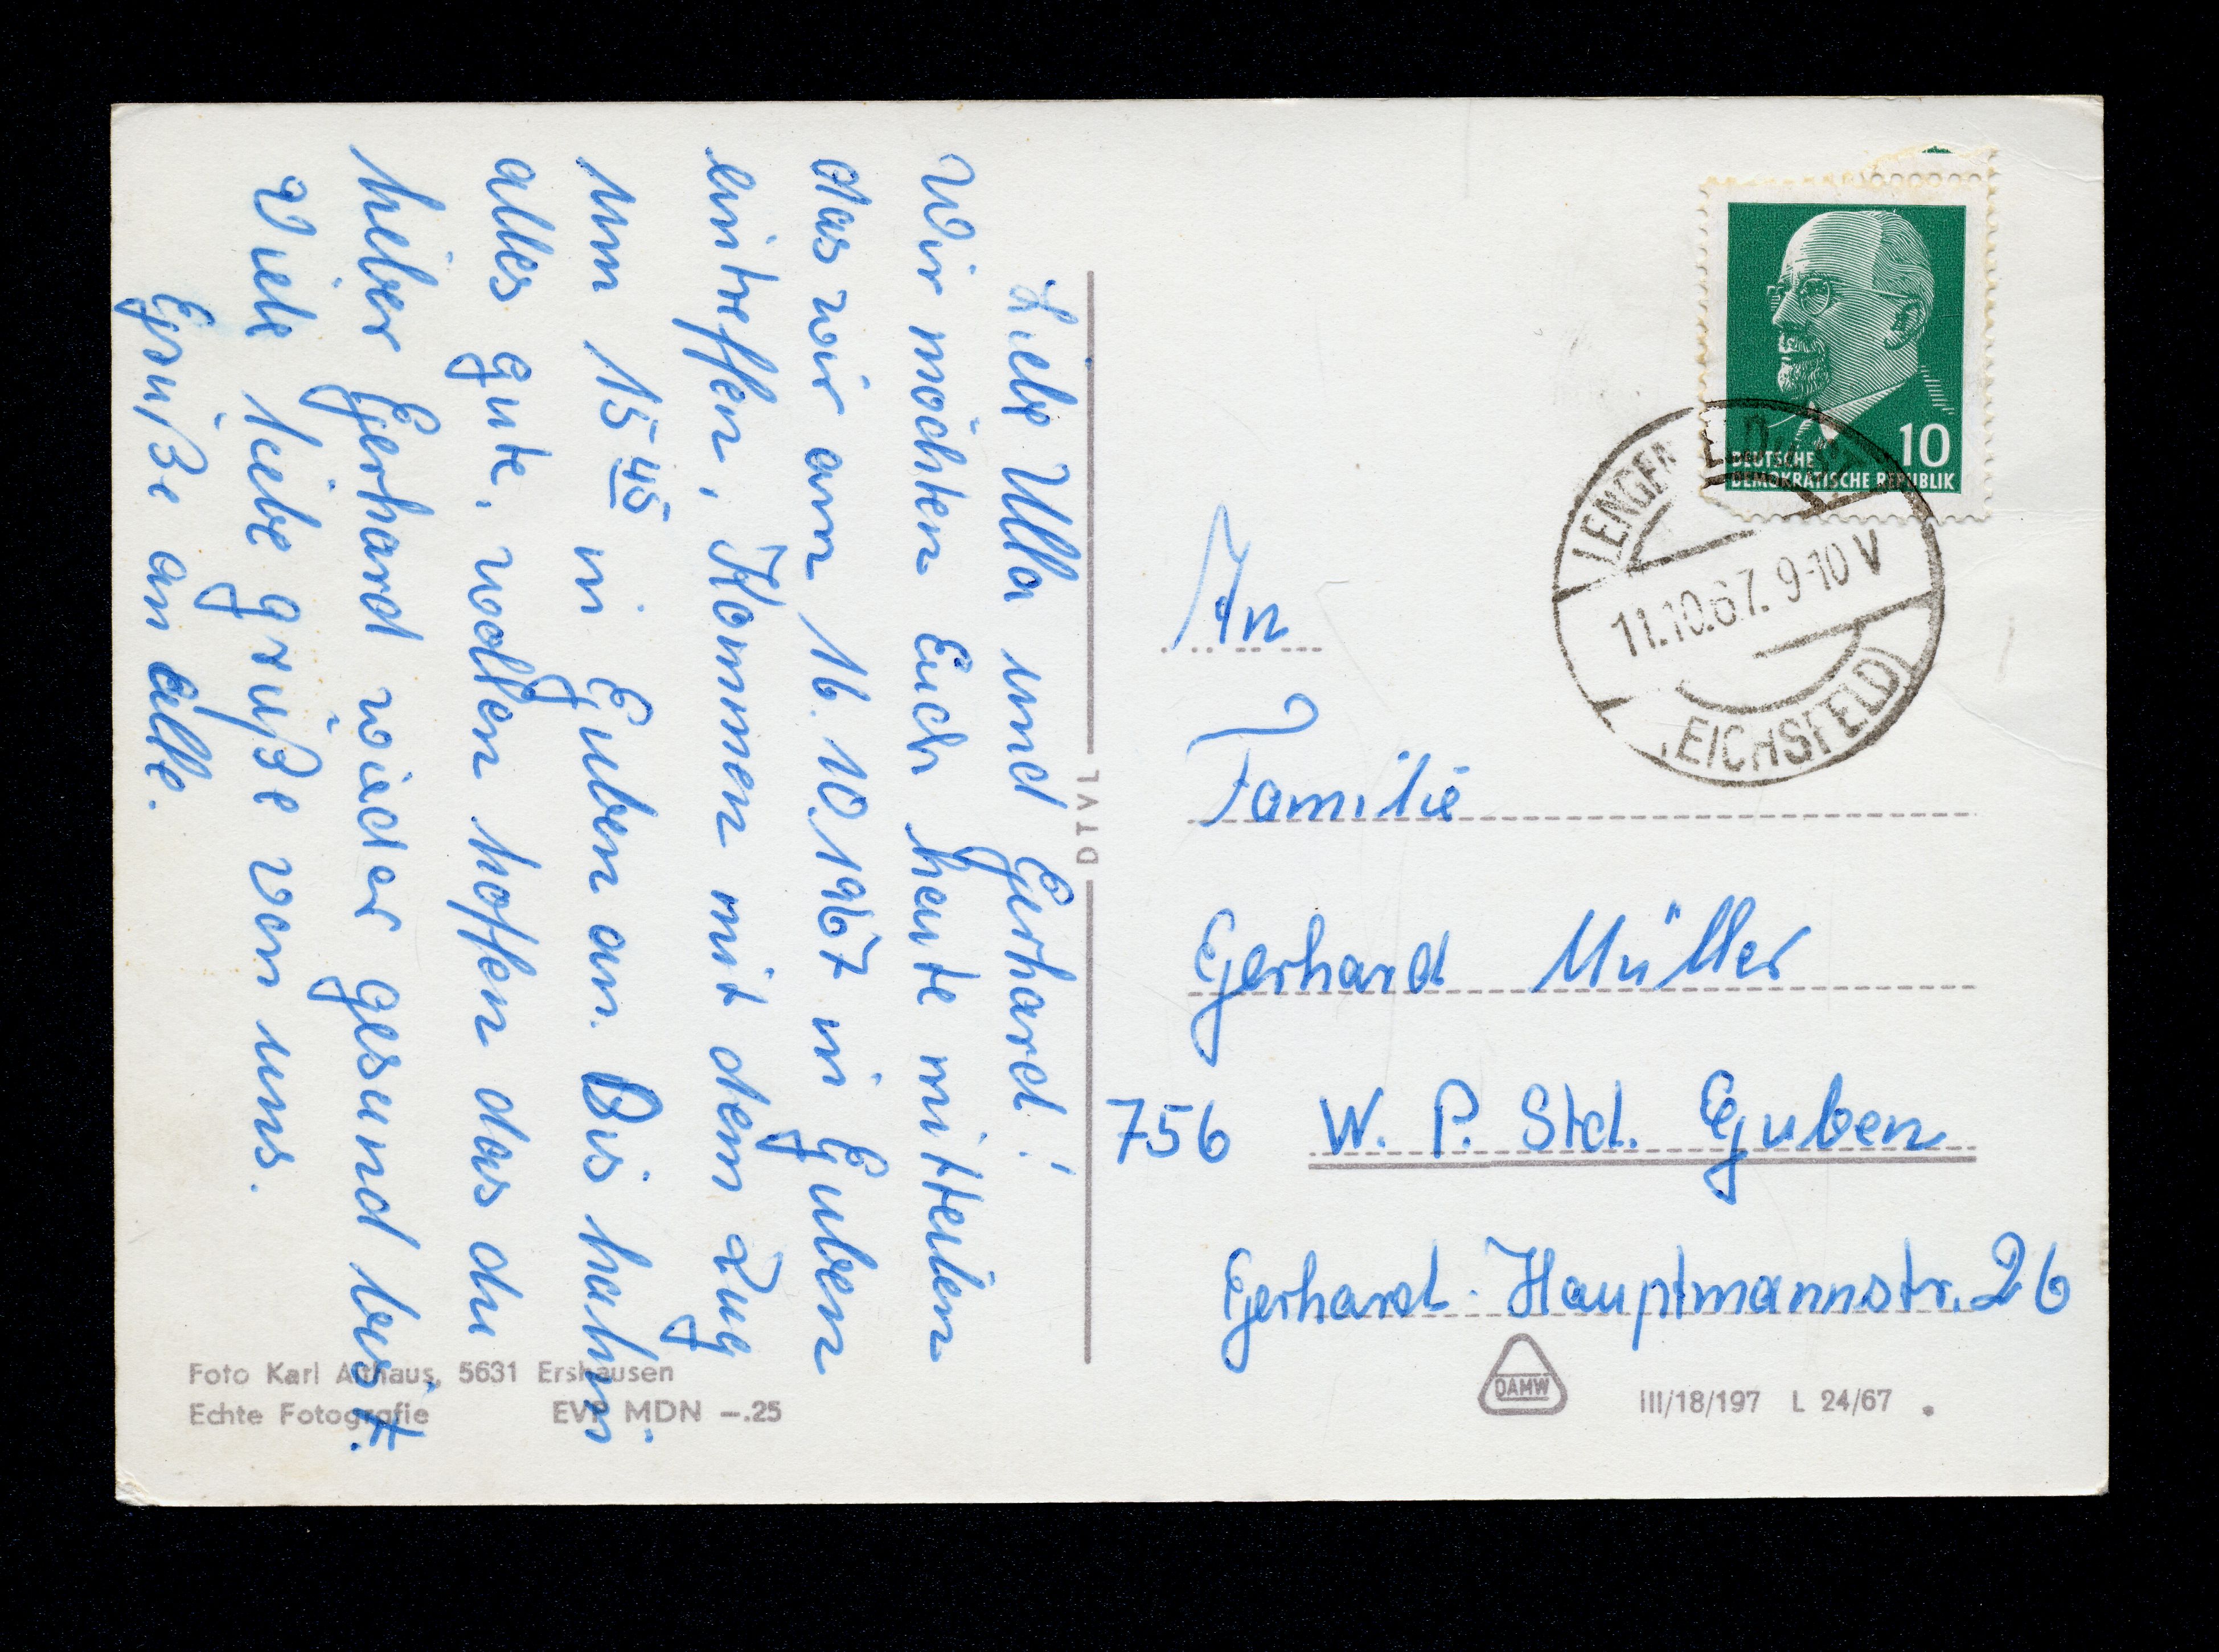 Liebe Ulla und Gerhard!
Wir möchten Euch heute mitteilen
das wir am 16.10.1967 in Guben
eintreffen, Kommen mit dem Zug
um 15 45 in Guben an. Bis hierhin
alles gute, wollen hoffen das du
lieber Gerhard wieder gesund bist.
Viele liebe grüße von uns.
Grüße an alle.
DTVL
Foto Karl Althaus, 5631 Ershausen
Echte Fotografie EVP MDN –.25
10
DEUTSCHE
DEMOKRATISCHE REPUBLIK
11.10.67. 9-10 V
(EICHSFELD)
An
Familie
Gerhard Müller
756 W. P. Std. Guben
Gerhard-Hauptmannstr. 26
DAMW
III/18/197 L 24/67